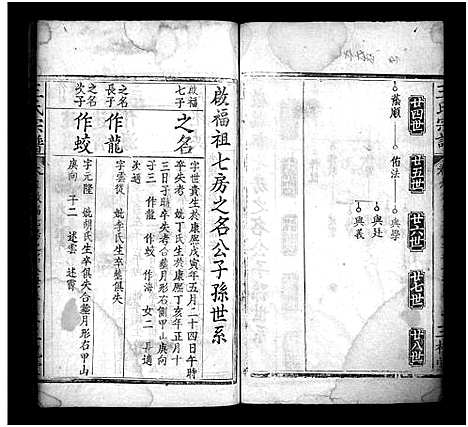 王氏宗譜
廿四世
廿五世
廿六世
廿七世
廿八世
蔭順
佑法
與學
與廷
與義
啟福祖七房之名公子孫世系
啟福
七子
之名
字世貴生於康熙戊寅年五月二十四日午時
卒失考 娶丁氏生於康熙丁亥年正月十
三日子時卒失考合葬月形右側甲山庚向
子三 作龍 作蛟 作海 女二 具適
之名
長子
作龍
字雲從 娶李氏生卒葬俱失
之名
次子
作蛟
字元隆 娶胡氏生卒俱失合葬月形右甲山
庚向 子二 述雲 述霄
王氏宗譜